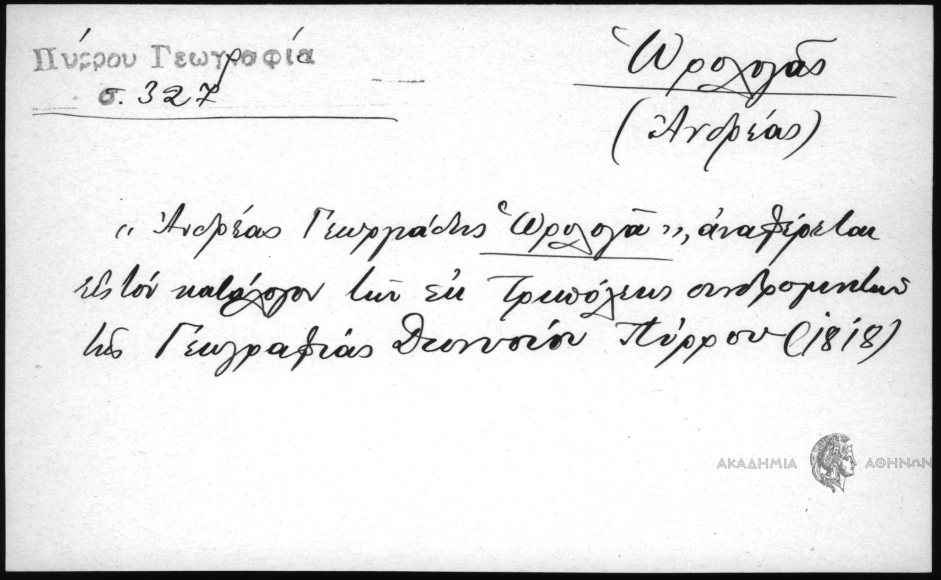 Πύρρου Γεωγραφία
σ. 327
Ὡρολογᾶς
(Ἀνδρέας)
„ Ἀνδρέας Γεωργιάδης Ὡρολογᾶ», ἀναφέρεται
εἰς τὸν κατάλογον τῶν ἐκ Τριπόλεως συνδρομητῶν
τῆς Γεωγραφίας Διονυσίου Πύρρου (1818)
ΑΚΑΔΗΜΙΑ ΑΘΗΝΩΝ